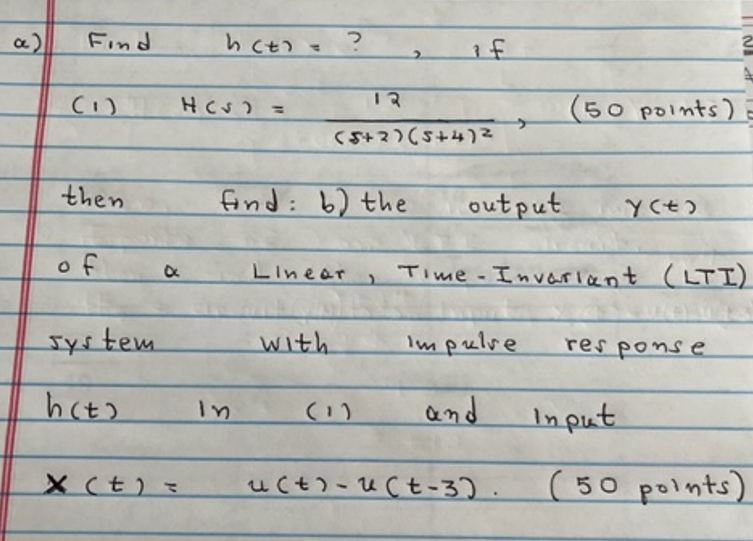 a) Find h(t) = ? , if
(1) H(s) = 12 / (s+2)(s+4)² , (50 points)
then find: b) the output y(t)
of a Linear, Time-Invariant (LTI)
system with impulse response
h(t) in (1) and input
x(t) = u(t) - u(t-3). (50 points)